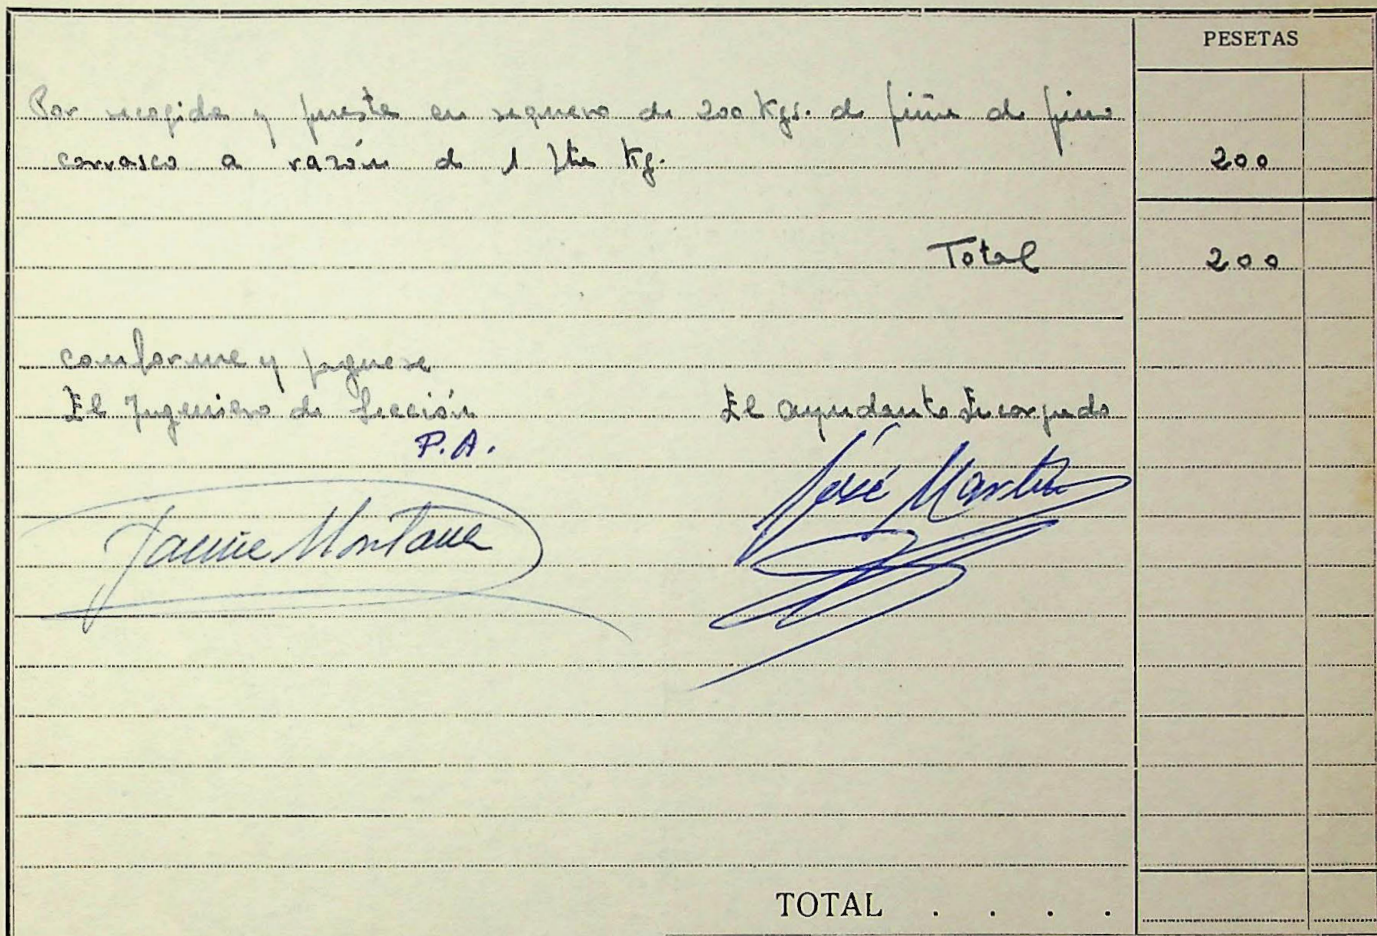 PESETAS
Por recogida y puesta en sequero de 200 Kgs. de piña de pino
carrasco a razón de 1 Pta Kg. 200
Total 200
Conforme y páguese
El Ingeniero de Sección El Ayudante Encargado
P.A.
José Martin
Jaume Montane
TOTAL . . . .